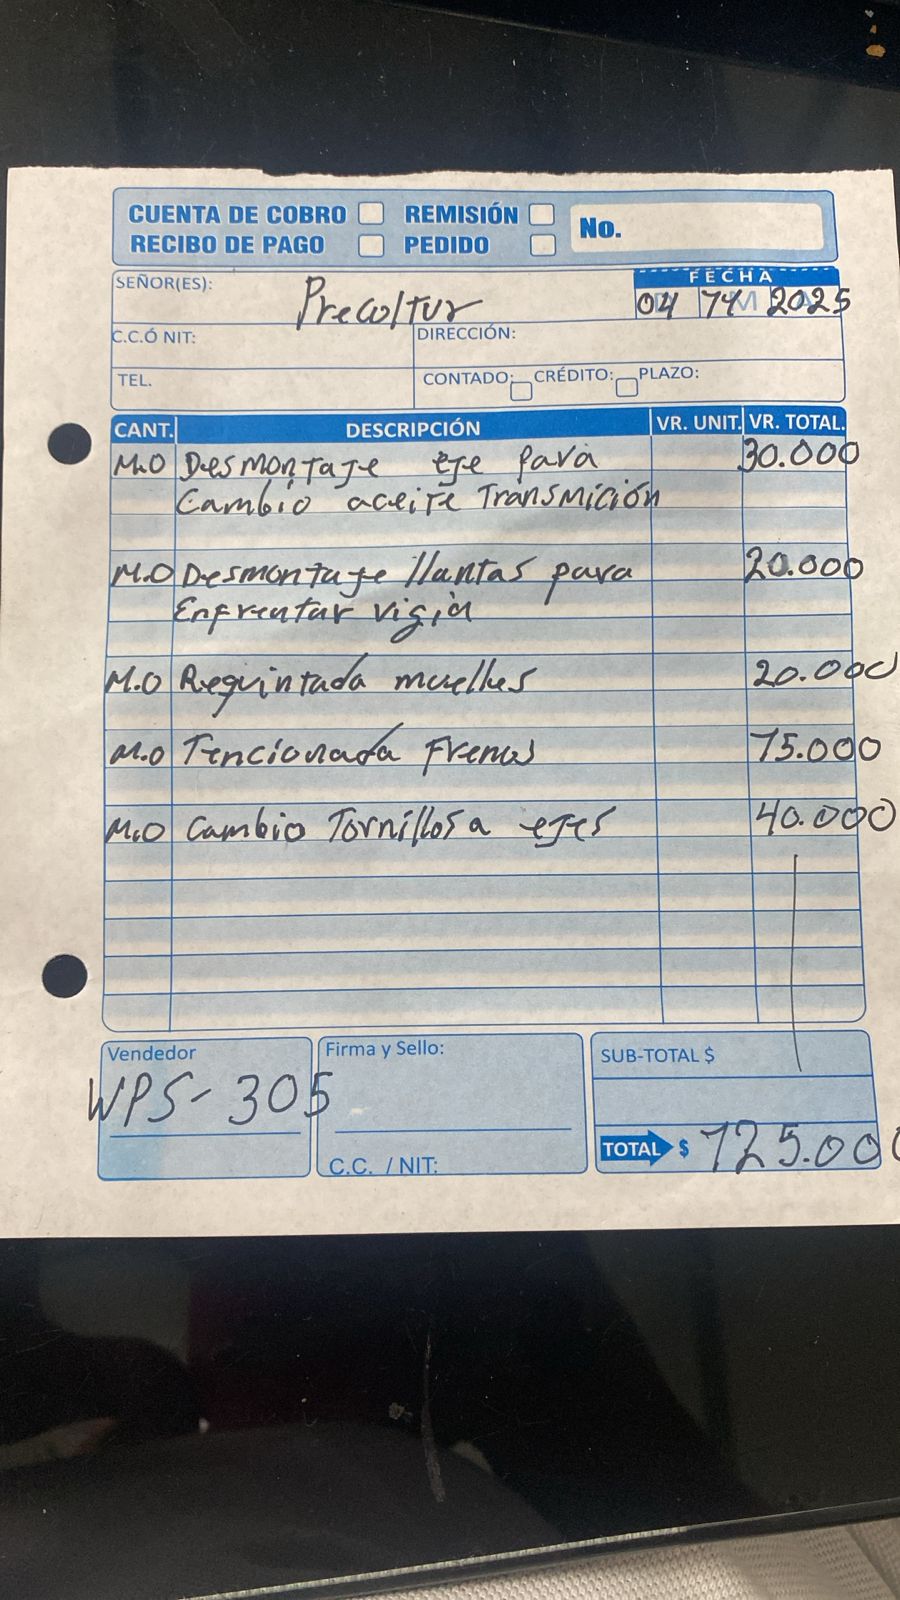 CUENTA DE COBRO REMISIÓN No.
RECIBO DE PAGO PEDIDO
SEÑOR(ES): Precoltur
FECHA
04 14 2025
C.C.Ó NIT: DIRECCIÓN:
TEL. CONTADO: CRÉDITO: PLAZO:
CANT. DESCRIPCIÓN VR. UNIT. VR. TOTAL.
M.O Desmontaje eje para 30.000
Cambio aceite Transmición
M.O Desmontaje llantas para 20.000
Enfrentar vigia
M.O Requintada muelles 20.000
M.O Tencionada Frenos 15.000
M.O Cambio Tornillos a ejes 40.000
Vendedor Firma y Sello: SUB-TOTAL $
WPS-305
TOTAL $ 125.000
C.C. / NIT: